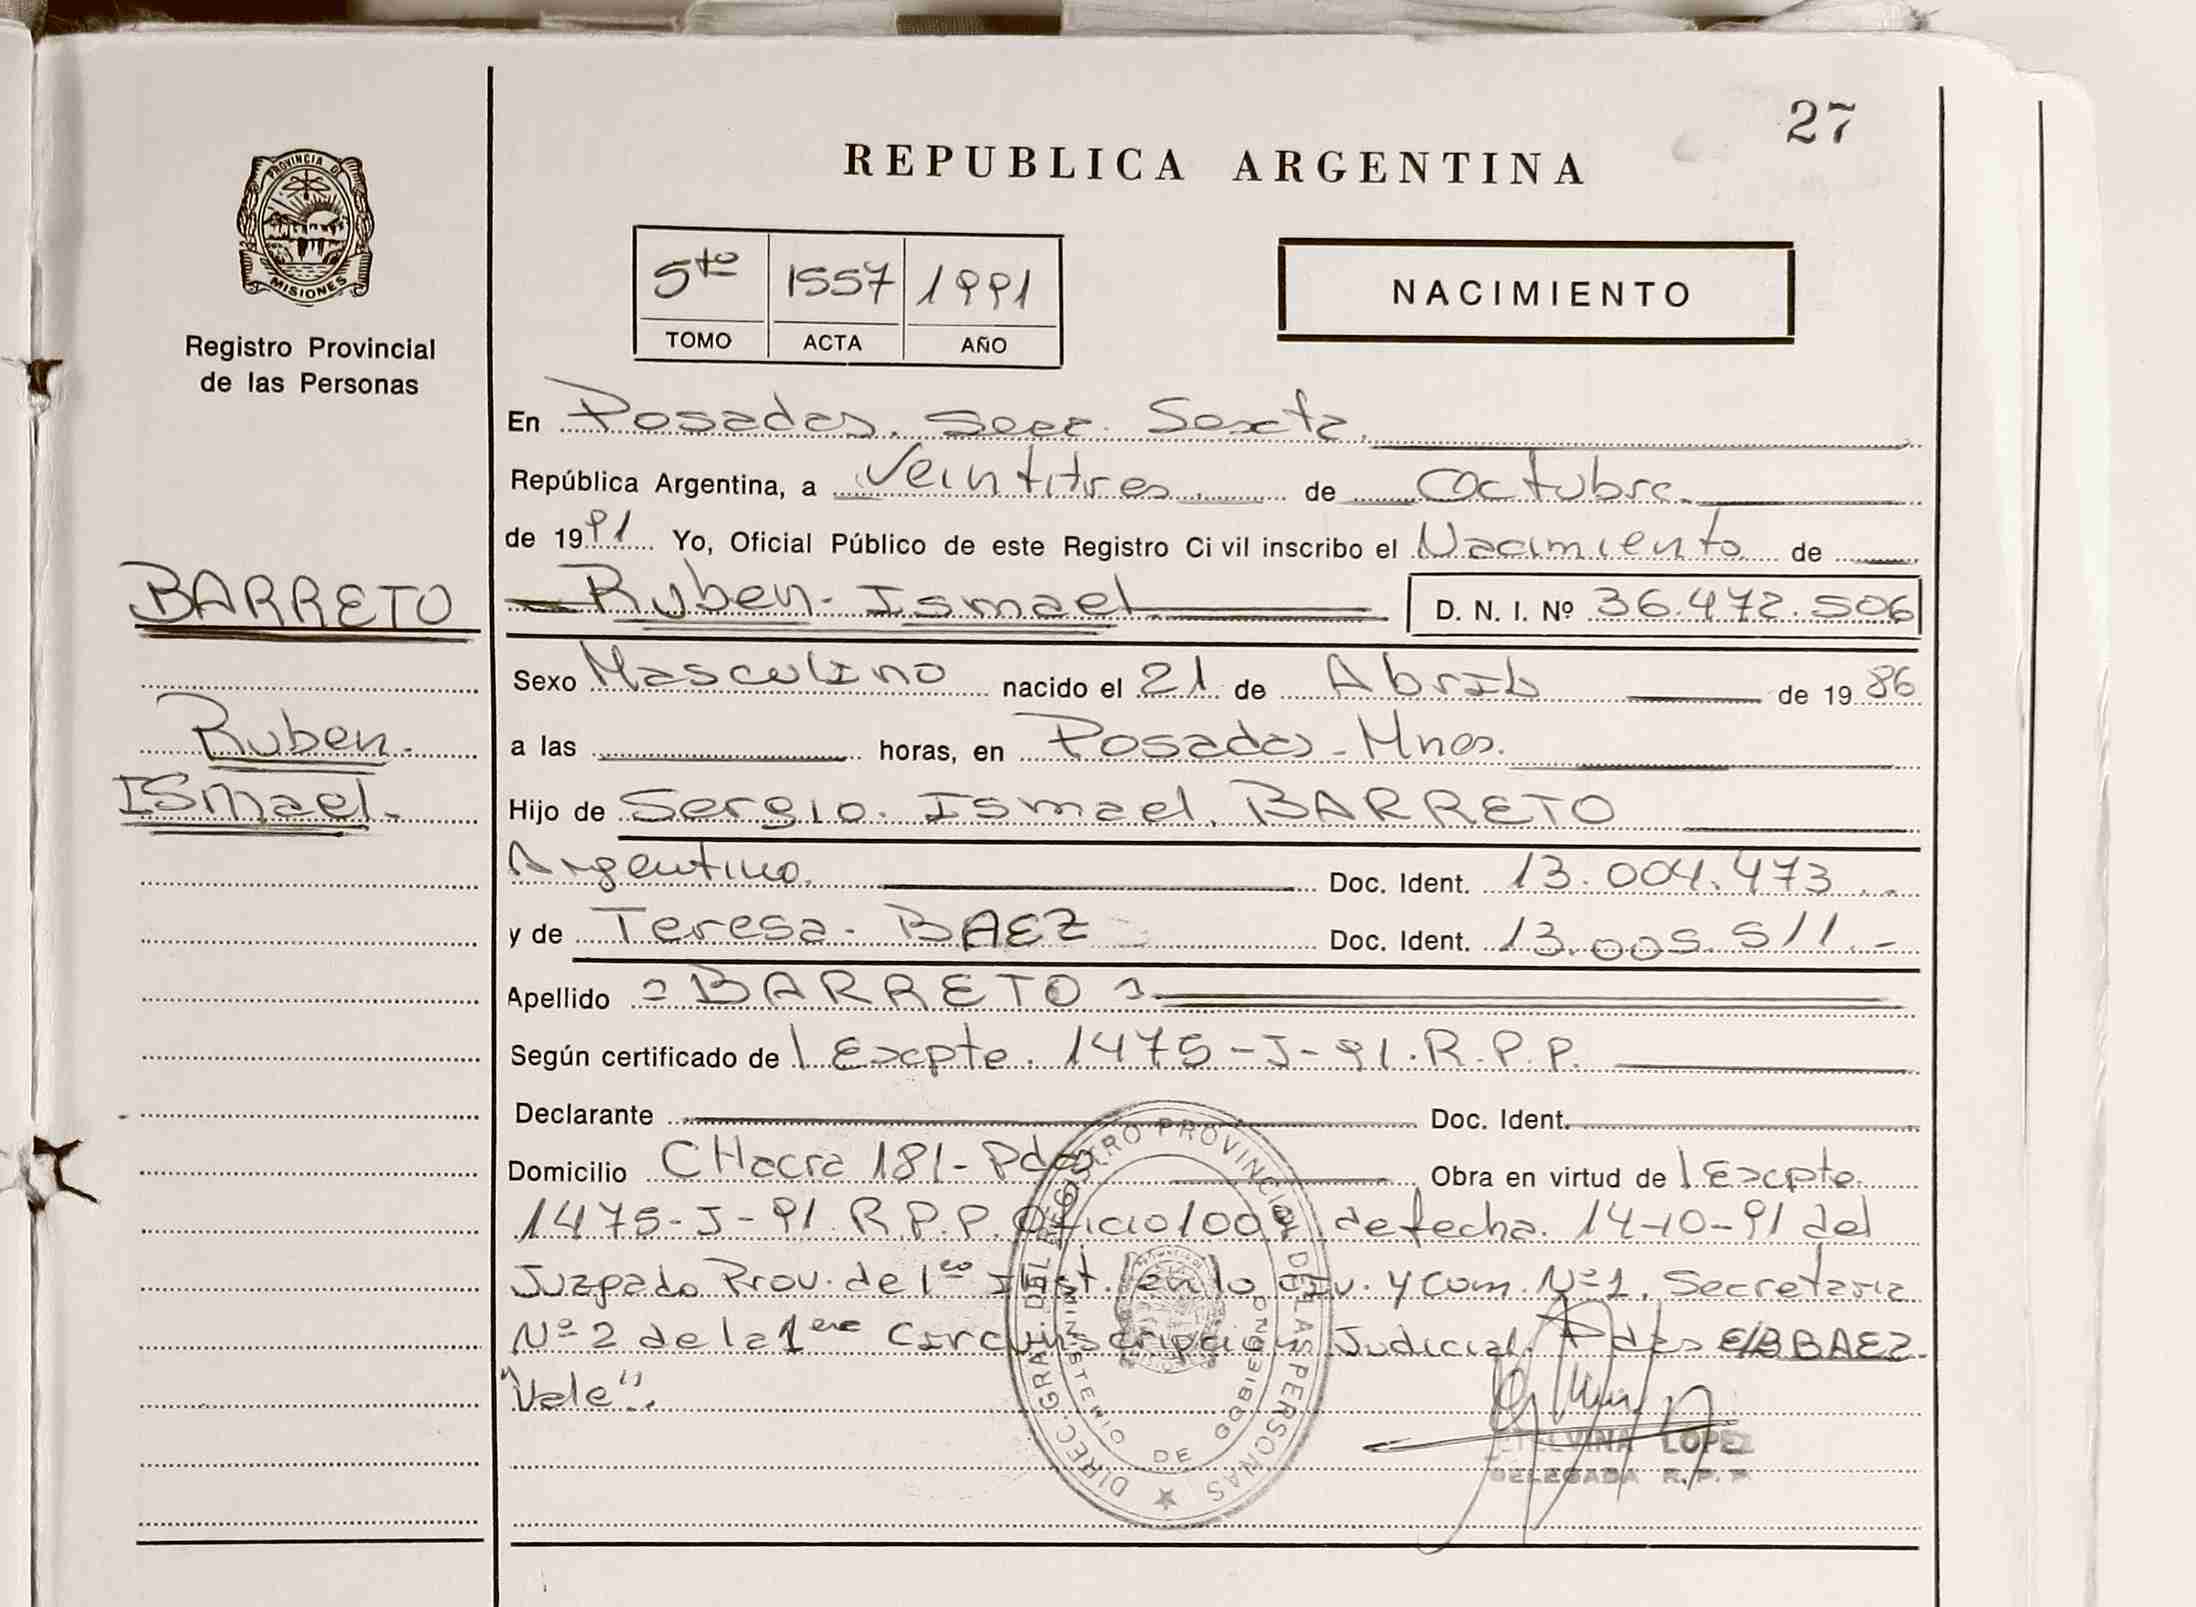 27
REPUBLICA ARGENTINA
PROVINCIA DE
MISIONES
Registro Provincial
de las Personas
5to 1557 1991
TOMO ACTA AÑO
NACIMIENTO
En Posadas. Secc. Sexta.
República Argentina, a Veintitres de Octubre.
de 1991 Yo, Oficial Público de este Registro Civil inscribo el Nacimiento de
BARRETO
Ruben. Ismael. D. N. I. Nº 36.472.506
Sexo Masculino nacido el 21 de Abril de 1986
Ruben.
a las horas, en Posadas - Mnes.
ISmael.
Hijo de Sergio. Ismael. BARRETO
Argentino. Doc. Ident. 13.004.473
y de Teresa. BAEZ Doc. Ident. 13.005.511.-
Apellido BARRETO
Según certificado de l Excpte. 1475-J-91. R.P.P.
Declarante Doc. Ident.
Domicilio CHacra 181- Pdas Obra en virtud de l Excpte.
1475-J-91. R.P.P. Oficio de fecha. 14-10-91 del
Juzgado Prov. de 1ra Inst. en lo Civ. y Com. Nº1. Secretaria
Nº2 de la 1era Circunscripcion Judicial. Pdas E/B BAEZ.
"Vale".
DIREC. GRAL. DEL REGISTRO PROVINCIAL DE LAS PERSONAS
MINISTERIO DE GOBIERNO
ETELVINA LOPEZ
DELEGADA R.P.P.